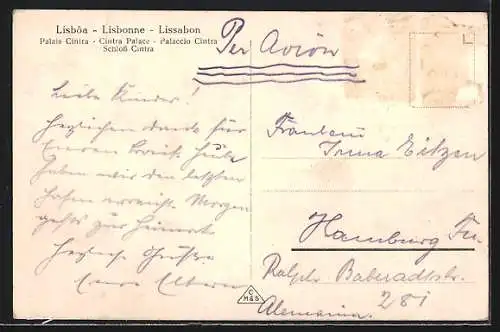 Lisbôa - Lisbonne - Lissabon
Palais Cintra - Cintra Palace - Palaccio Cintra
Schloß Cintra
Per Avion
Liebe Kinder!
Herzlichen Dank für
Eueren Brief. Heute
haben wir den letzten
Hafen erreicht. Morgen
gehts zur Heimat.
Herzliche Grüße
Eure Eltern
Fräulein
Irma Eitzen
Hamburg Fu.
Ralph
281
Alemania.
C
M&S